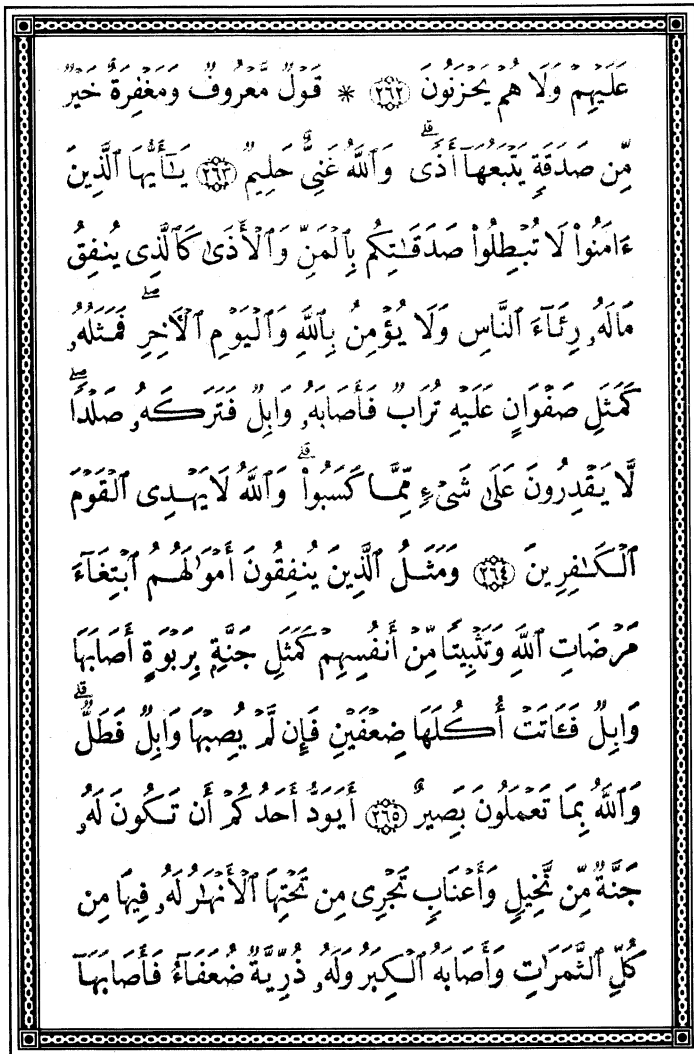 عَلَيْهِمْ وَلَا هُمْ يَحْزَنُونَ ۝٢٦٢ * قَوْلٌ مَّعْرُوفٌ وَمَغْفِرَةٌ خَيْرٌ
مِّن صَدَقَةٍ يَتْبَعُهَآ أَذًىۗ وَٱللَّهُ غَنِىٌّ حَلِيمٌ ۝٢٦٣ يَـٰٓأَيُّهَا ٱلَّذِينَ
ءَامَنُوا۟ لَا تُبْطِلُوا۟ صَدَقَـٰتِكُم بِٱلْمَنِّ وَٱلْأَذَىٰ كَٱلَّذِى يُنفِقُ
مَالَهُۥ رِئَآءَ ٱلنَّاسِ وَلَا يُؤْمِنُ بِٱللَّهِ وَٱلْيَوْمِ ٱلْـَٔاخِرِۖ فَمَثَلُهُۥ
كَمَثَلِ صَفْوَانٍ عَلَيْهِ تُرَابٌ فَأَصَابَهُۥ وَابِلٌ فَتَرَكَهُۥ صَلْدًاۖ
لَّا يَقْدِرُونَ عَلَىٰ شَىْءٍ مِّمَّا كَسَبُوا۟ۗ وَٱللَّهُ لَا يَهْدِى ٱلْقَوْمَ
ٱلْكَـٰفِرِينَ ۝٢٦٤ وَمَثَلُ ٱلَّذِينَ يُنفِقُونَ أَمْوَٰلَهُمُ ٱبْتِغَآءَ
مَرْضَاتِ ٱللَّهِ وَتَثْبِيتًا مِّنْ أَنفُسِهِمْ كَمَثَلِ جَنَّةٍۭ بِرَبْوَةٍ أَصَابَهَا
وَابِلٌ فَـَٔاتَتْ أُكُلَهَا ضِعْفَيْنِ فَإِن لَّمْ يُصِبْهَا وَابِلٌ فَطَلٌّۗ
وَٱللَّهُ بِمَا تَعْمَلُونَ بَصِيرٌ ۝٢٦٥ أَيَوَدُّ أَحَدُكُمْ أَن تَكُونَ لَهُۥ
جَنَّةٌ مِّن نَّخِيلٍ وَأَعْنَابٍ تَجْرِى مِن تَحْتِهَا ٱلْأَنْهَـٰرُ لَهُۥ فِيهَا مِن
كُلِّ ٱلثَّمَرَٰتِ وَأَصَابَهُ ٱلْكِبَرُ وَلَهُۥ ذُرِّيَّةٌ ضُعَفَآءُ فَأَصَابَهَآ